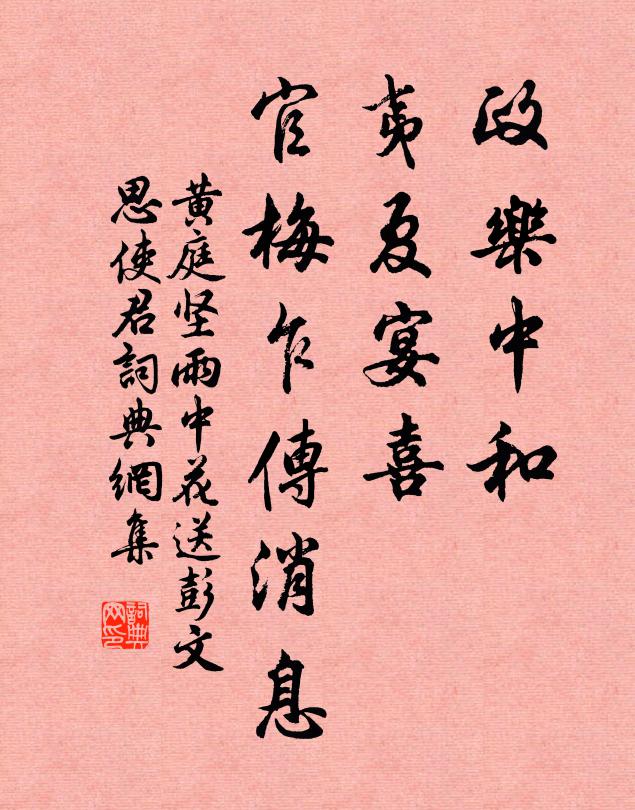 政樂中和
夷夏宴喜
官梅乍傳消息
黄庭坚雨中花送彭文
思使君詞典網集
詞典
网印